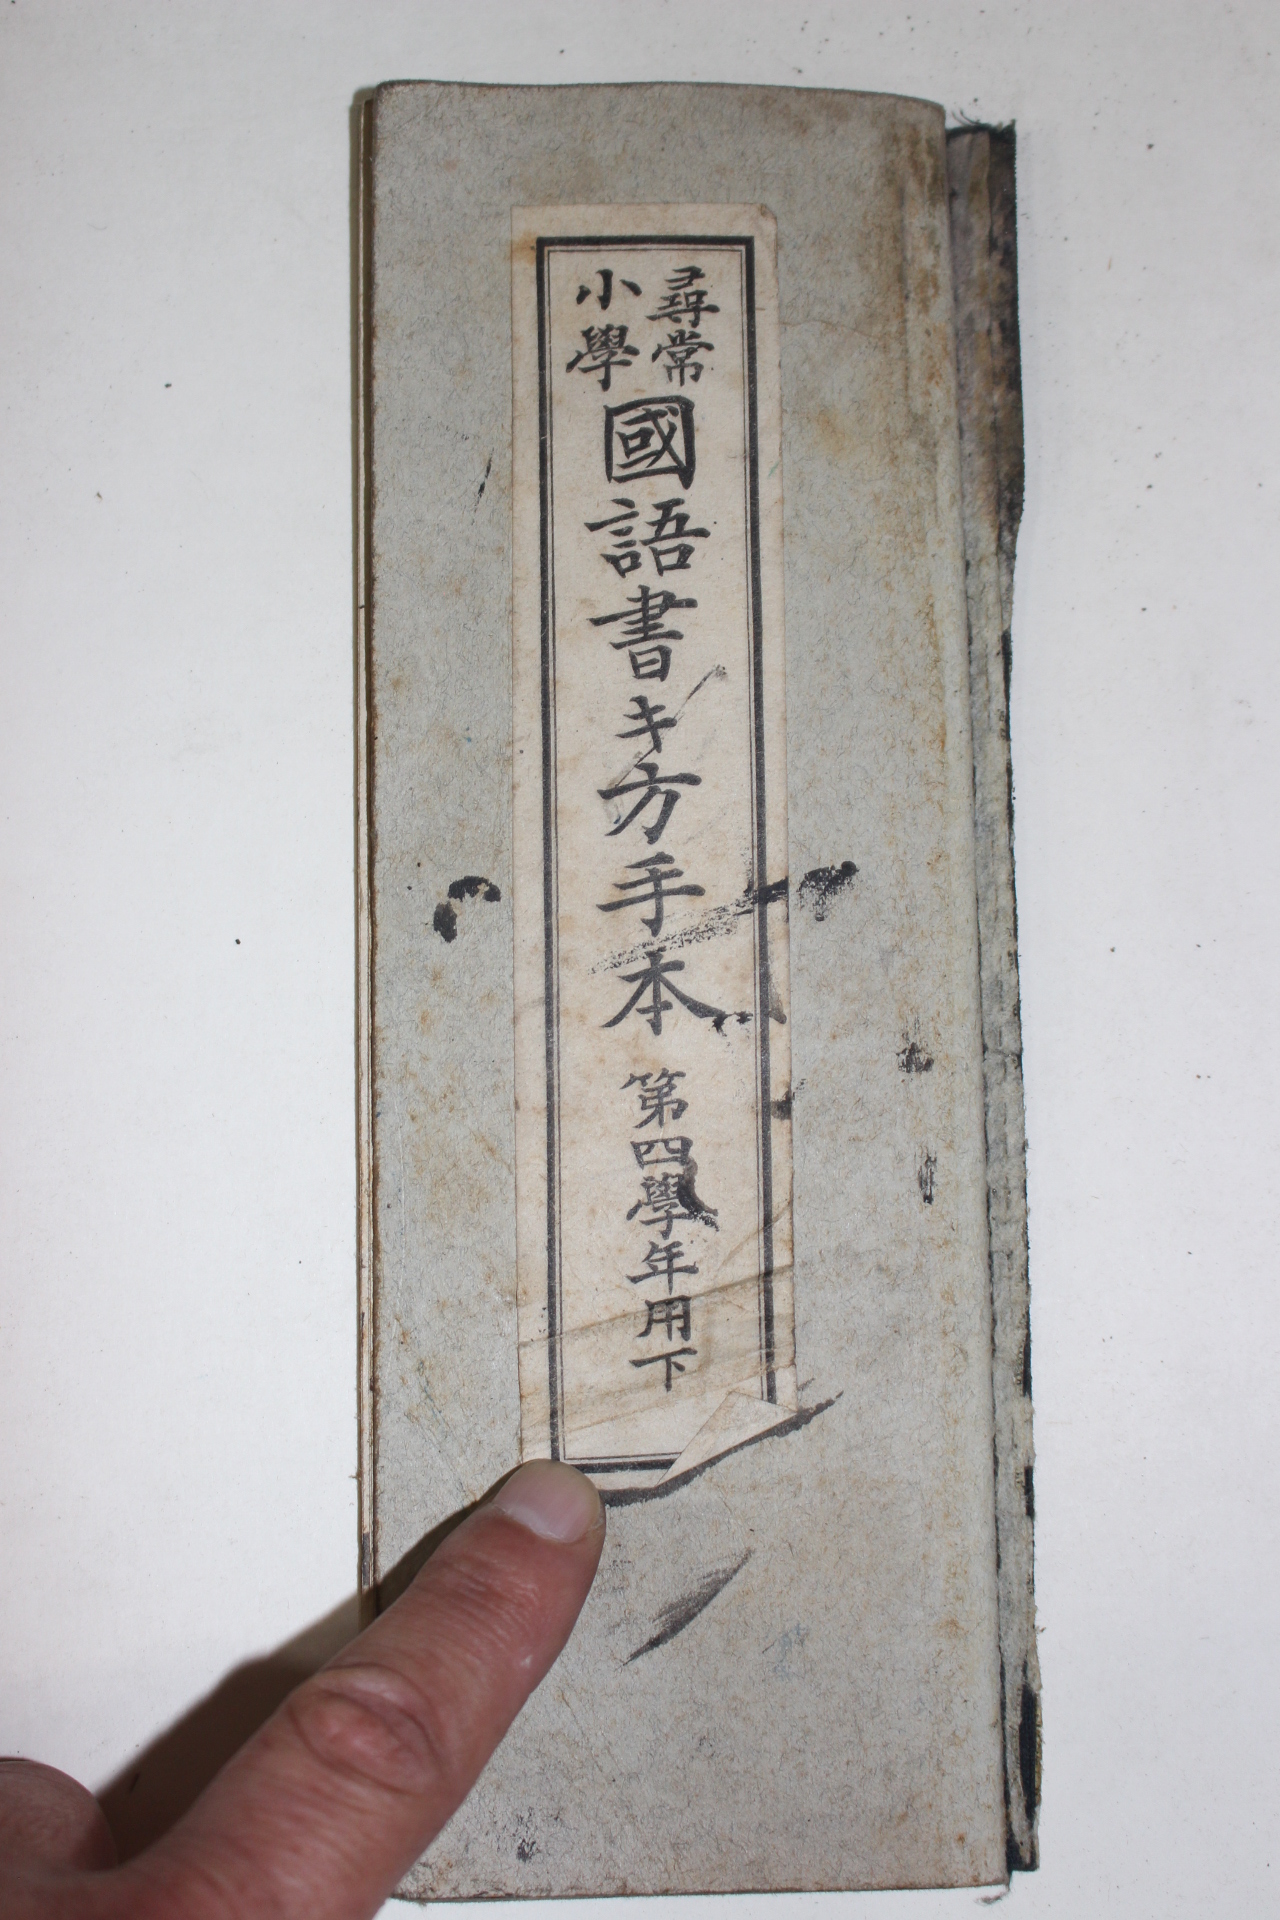 尋常
小學
國語書キ方手本 第四學年用下